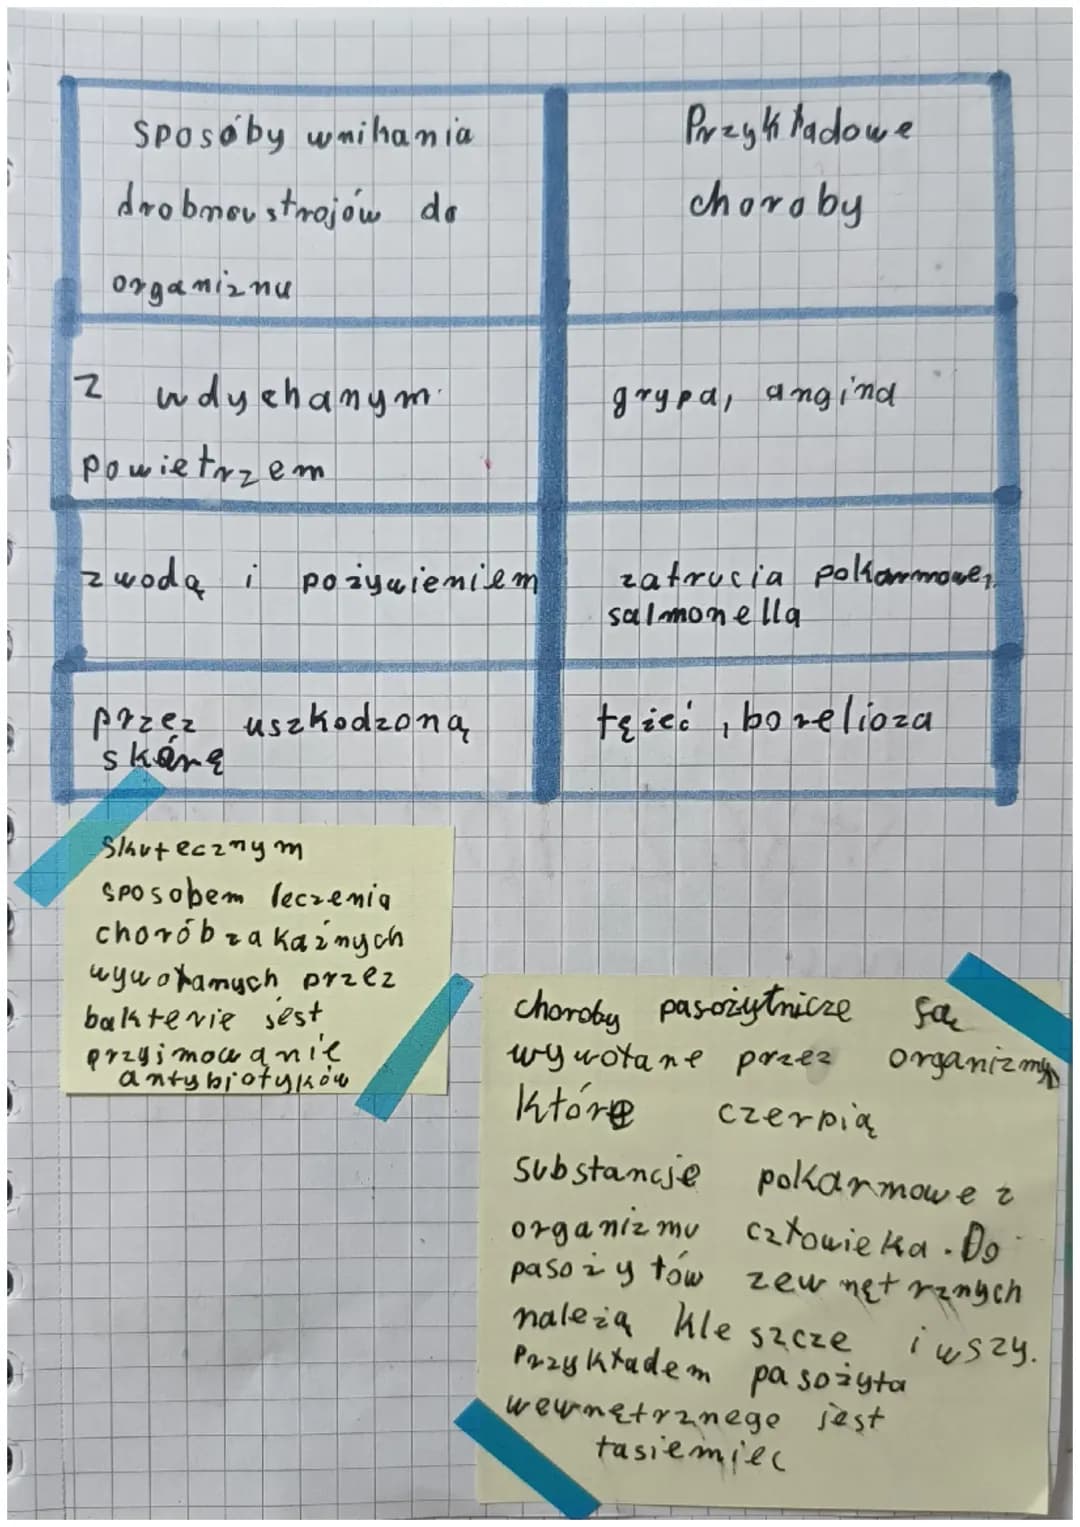 sposoby wnikania
drobnoustrojów do
organiznu
Przykładowe
choroby
z wdychanym
powietrzem
grypa, angina
z wodą i pożywieniem
zatrucia pokarmowe,
salmonella
przez uszkodzoną
skórę
tężeć, borelioza
Skutecznym
sposobem leczenia
chorób zakaźnych
wywołanych przez
bakterie jest
przyjmowanie
antybiotyków
choroby pasożytnicze są
wywołane przez organizmy
które czerpią
substancje pokarmowe z
organizmu człowieka. Do
pasożytów zewnętrznych
należą kleszcze i wszy.
Przykładem pasożyta
wewnętrznego jest
tasiemiec